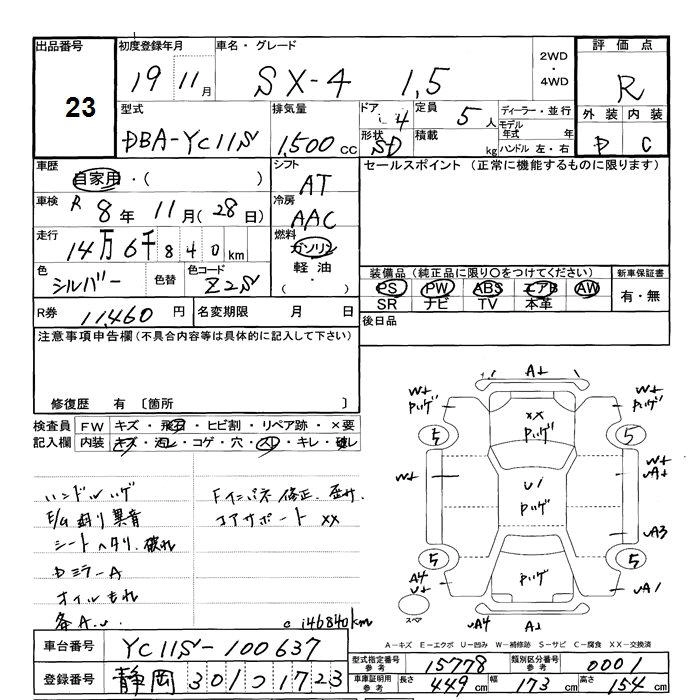 出品番号
23
初度登録年月
19 11月
車名・グレード
SX-4 1,5
2WD
・
4WD
評価点
R
外装 内装
D C
型式
DBA-YC11S
排気量
1,500 CC
ドア
4
形状
SD
定員
5人
積載
kg
ディーラー・並行
モデル年式 年
ハンドル 左・右
車歴
自家用・( )
シフト
AT
セールスポイント (正常に機能するものに限ります)
車検 R 8年 11月(28日)
冷房
AAC
走行
14万6千840km
燃料
ガソリン
軽油
( ・ )
色
シルバー
色替
色コード
Z2S
装備品 (純正品に限り〇をつけてください)
新車保証書
PS PW ABS エアB AW
有・無
SR ナビ TV 本革
R券 11,460円
名変期限 月 日
後日品
注意事項申告欄(不具合内容等は具体的に記入して下さい)
修復歴 有 〔箇所 〕
検査員 FW キズ・飛石・ヒビ割・リペア跡・×要
記入欄 内装 キズ・汚レ・コゲ・穴・スレ・キレ・破レ
ハンドルハゲ
E/G廻り異音
シートヘタリ、破れ
Dミラー A
オイルもれ
Fインパネ修正、歪サ、
コアサポート XX
c 146840km
A↓
W↓
Pハゲ
W↓
Pハゲ
XX
Pハゲ
5
5
W↓
W↓
A↓
U1
Pハゲ
A3
5
5
Pハゲ
A4
U↓
A1
スペア
A4
A↓
A－キズ E－エクボ U－凹み W－補修跡 S－サビ C－腐食 XX－交換済
車台番号
YC11S-100637
登録番号
静岡 301 つ 1723
型式指定番号
参考
15778
類別区分番号
参考
0001
車庫証明用
参考
長さ 449cm 幅 173cm 高さ 154cm